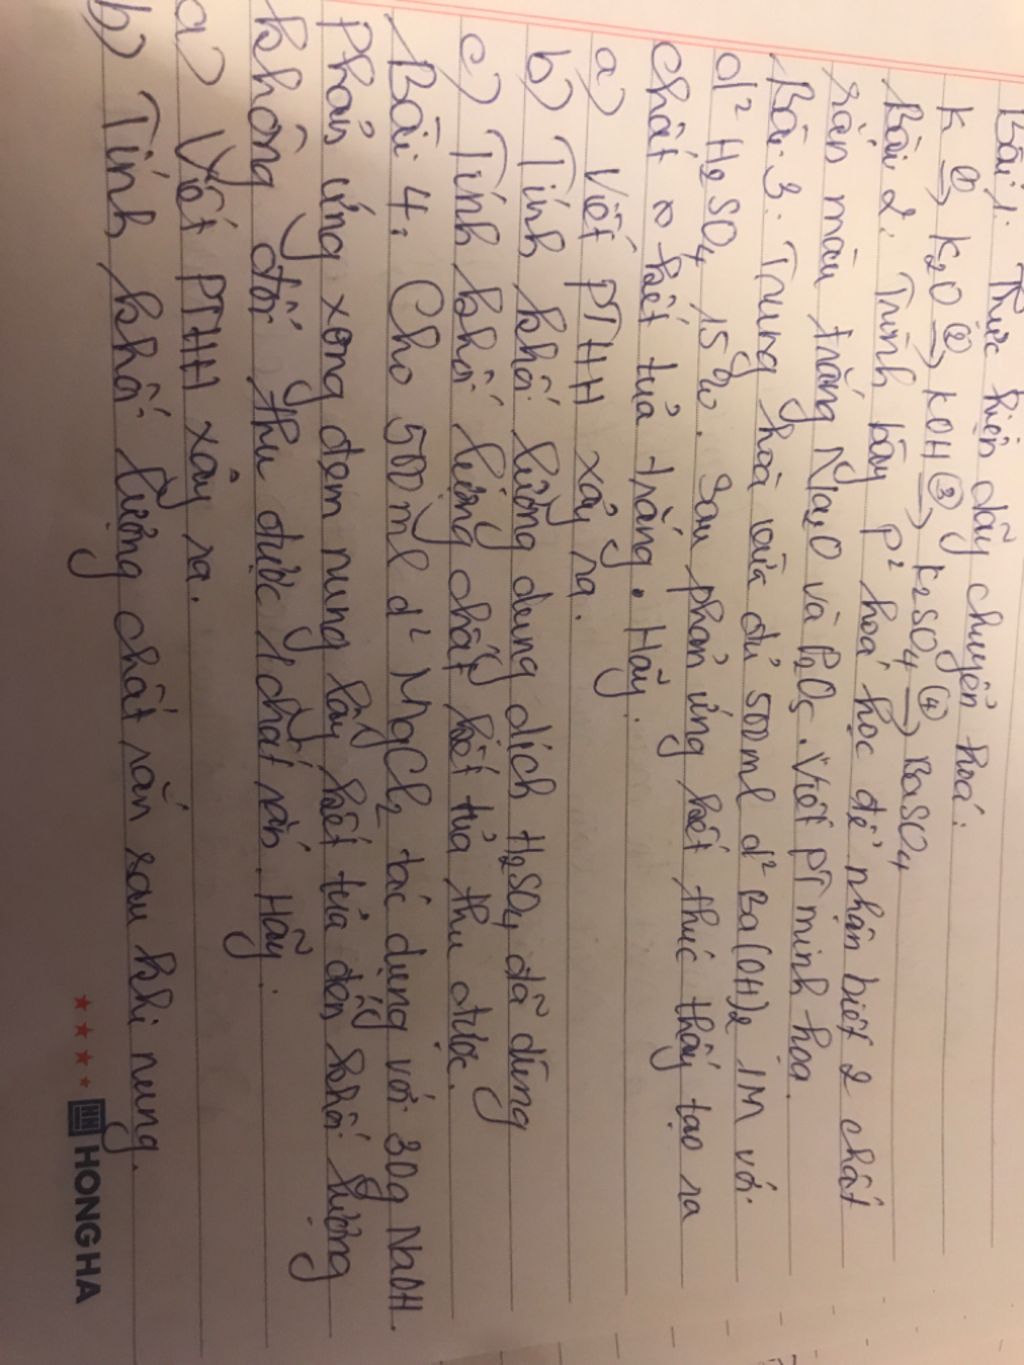 Bài 1: Thực hiện dãy chuyển hoá:
K ①→ K₂O ②→ KOH ③→ K₂SO₄ ④→ BaSO₄
Bài 2: Trình bày p² hoá học để nhận biết 2 chất
rắn màu trắng Na₂O và P₂O₅. Viết PT minh hoạ
Bài 3: Trung hoà vừa đủ 500ml d² Ba(OH)₂ 1M với
d² H₂SO₄ 15%. Sau phản ứng kết thúc thấy tạo ra
chất kết tủa trắng. Hãy:
a) Viết PTHH xảy ra.
b) Tính khối lượng dung dịch H₂SO₄ đã dùng
c) Tính khối lượng chất kết tủa thu được.
Bài 4: Cho 500ml d² MgCl₂ tác dụng với 30g NaOH.
Phản ứng xong đem nung lấy kết tủa đến khối lượng
không đổi thu được 1 chất rắn. Hãy:
a) Viết PTHH xảy ra.
b) Tính khối lượng chất rắn sau khi nung.
HONG HA